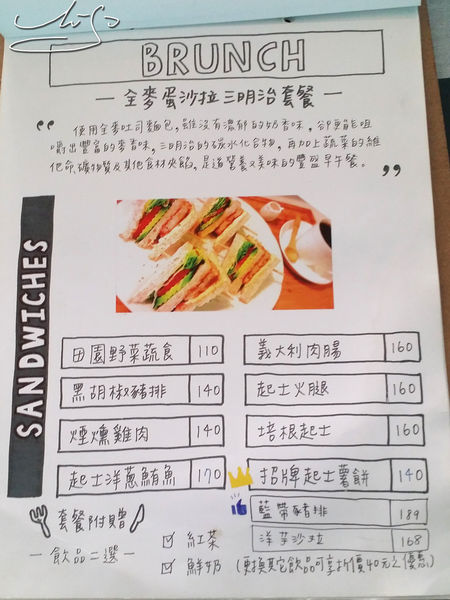 BRUNCH
— 全麥蛋沙拉三明治套餐 —
“ 使用全麥吐司麵包,雖沒有濃郁的奶香味,卻更能咀
嚼出豐富的麥香味,三明治的碳水化合物,再加上蔬菜的維
他命礦物質及其他食材夾餡,是道營養又美味的豐盛早午餐。 ”
SANDWICHES
田園野菜蔬食 110
義大利肉腸 160
黑胡椒豬排 140
起士火腿 160
煙燻雞肉 140
培根起士 160
起士洋蔥鮪魚 170
招牌起士薯餅 140
藍帶豬排 189
洋芋沙拉 168
套餐附贈
— 飲品二選一
紅茶
鮮奶 (更換其它飲品可享折價40元之優惠)